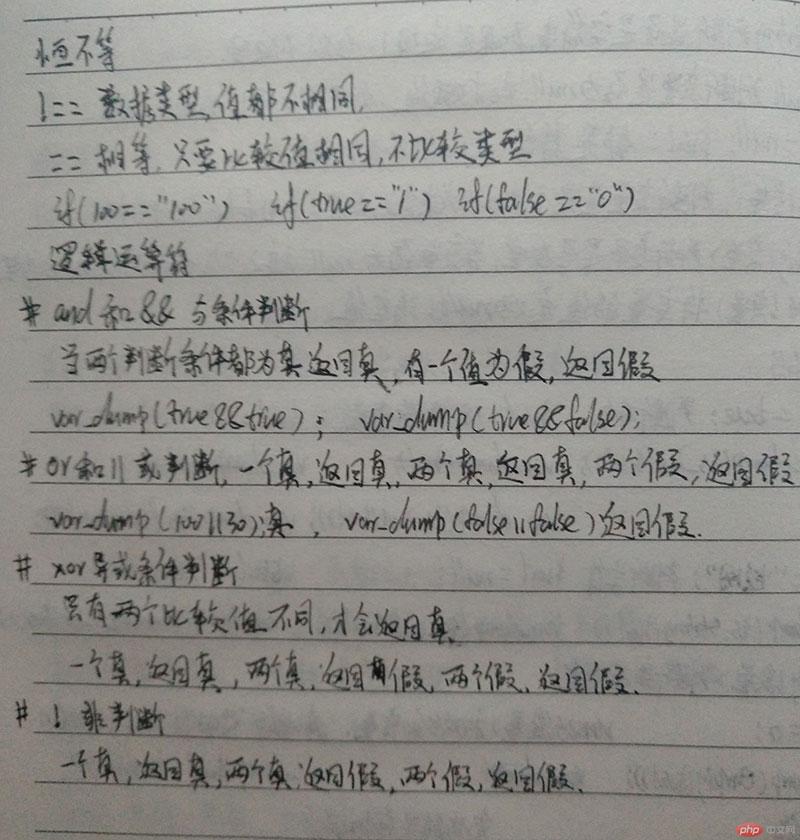 恒不等
!== 数据类型 值都不相同,
== 相等,只要比较值相同,不比较类型
if(100=="100") if(true=="1") if(false=="0")
逻辑运算符
# and 和 && 与条件判断
当两个判断条件都为真 返回真,有一个值为假,返回假
var_dump(true&&true); var_dump(true&&false);
# or和|| 或判断,一个真,返回真,两个真,返回真,两个假,返回假
var_dump(100||30);真, var_dump(false||false)返回假.
# xor 异或条件判断
只有两个比较值不同,才会返回真
一个真,返回真,两个真,返回假,两个假,返回假.
# ! 非判断
一个真,返回真,两个真,返回假,两个假,返回假.
php 中文网